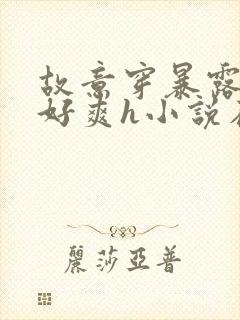 故意穿暴露
好爽h小説
麗莎亞普